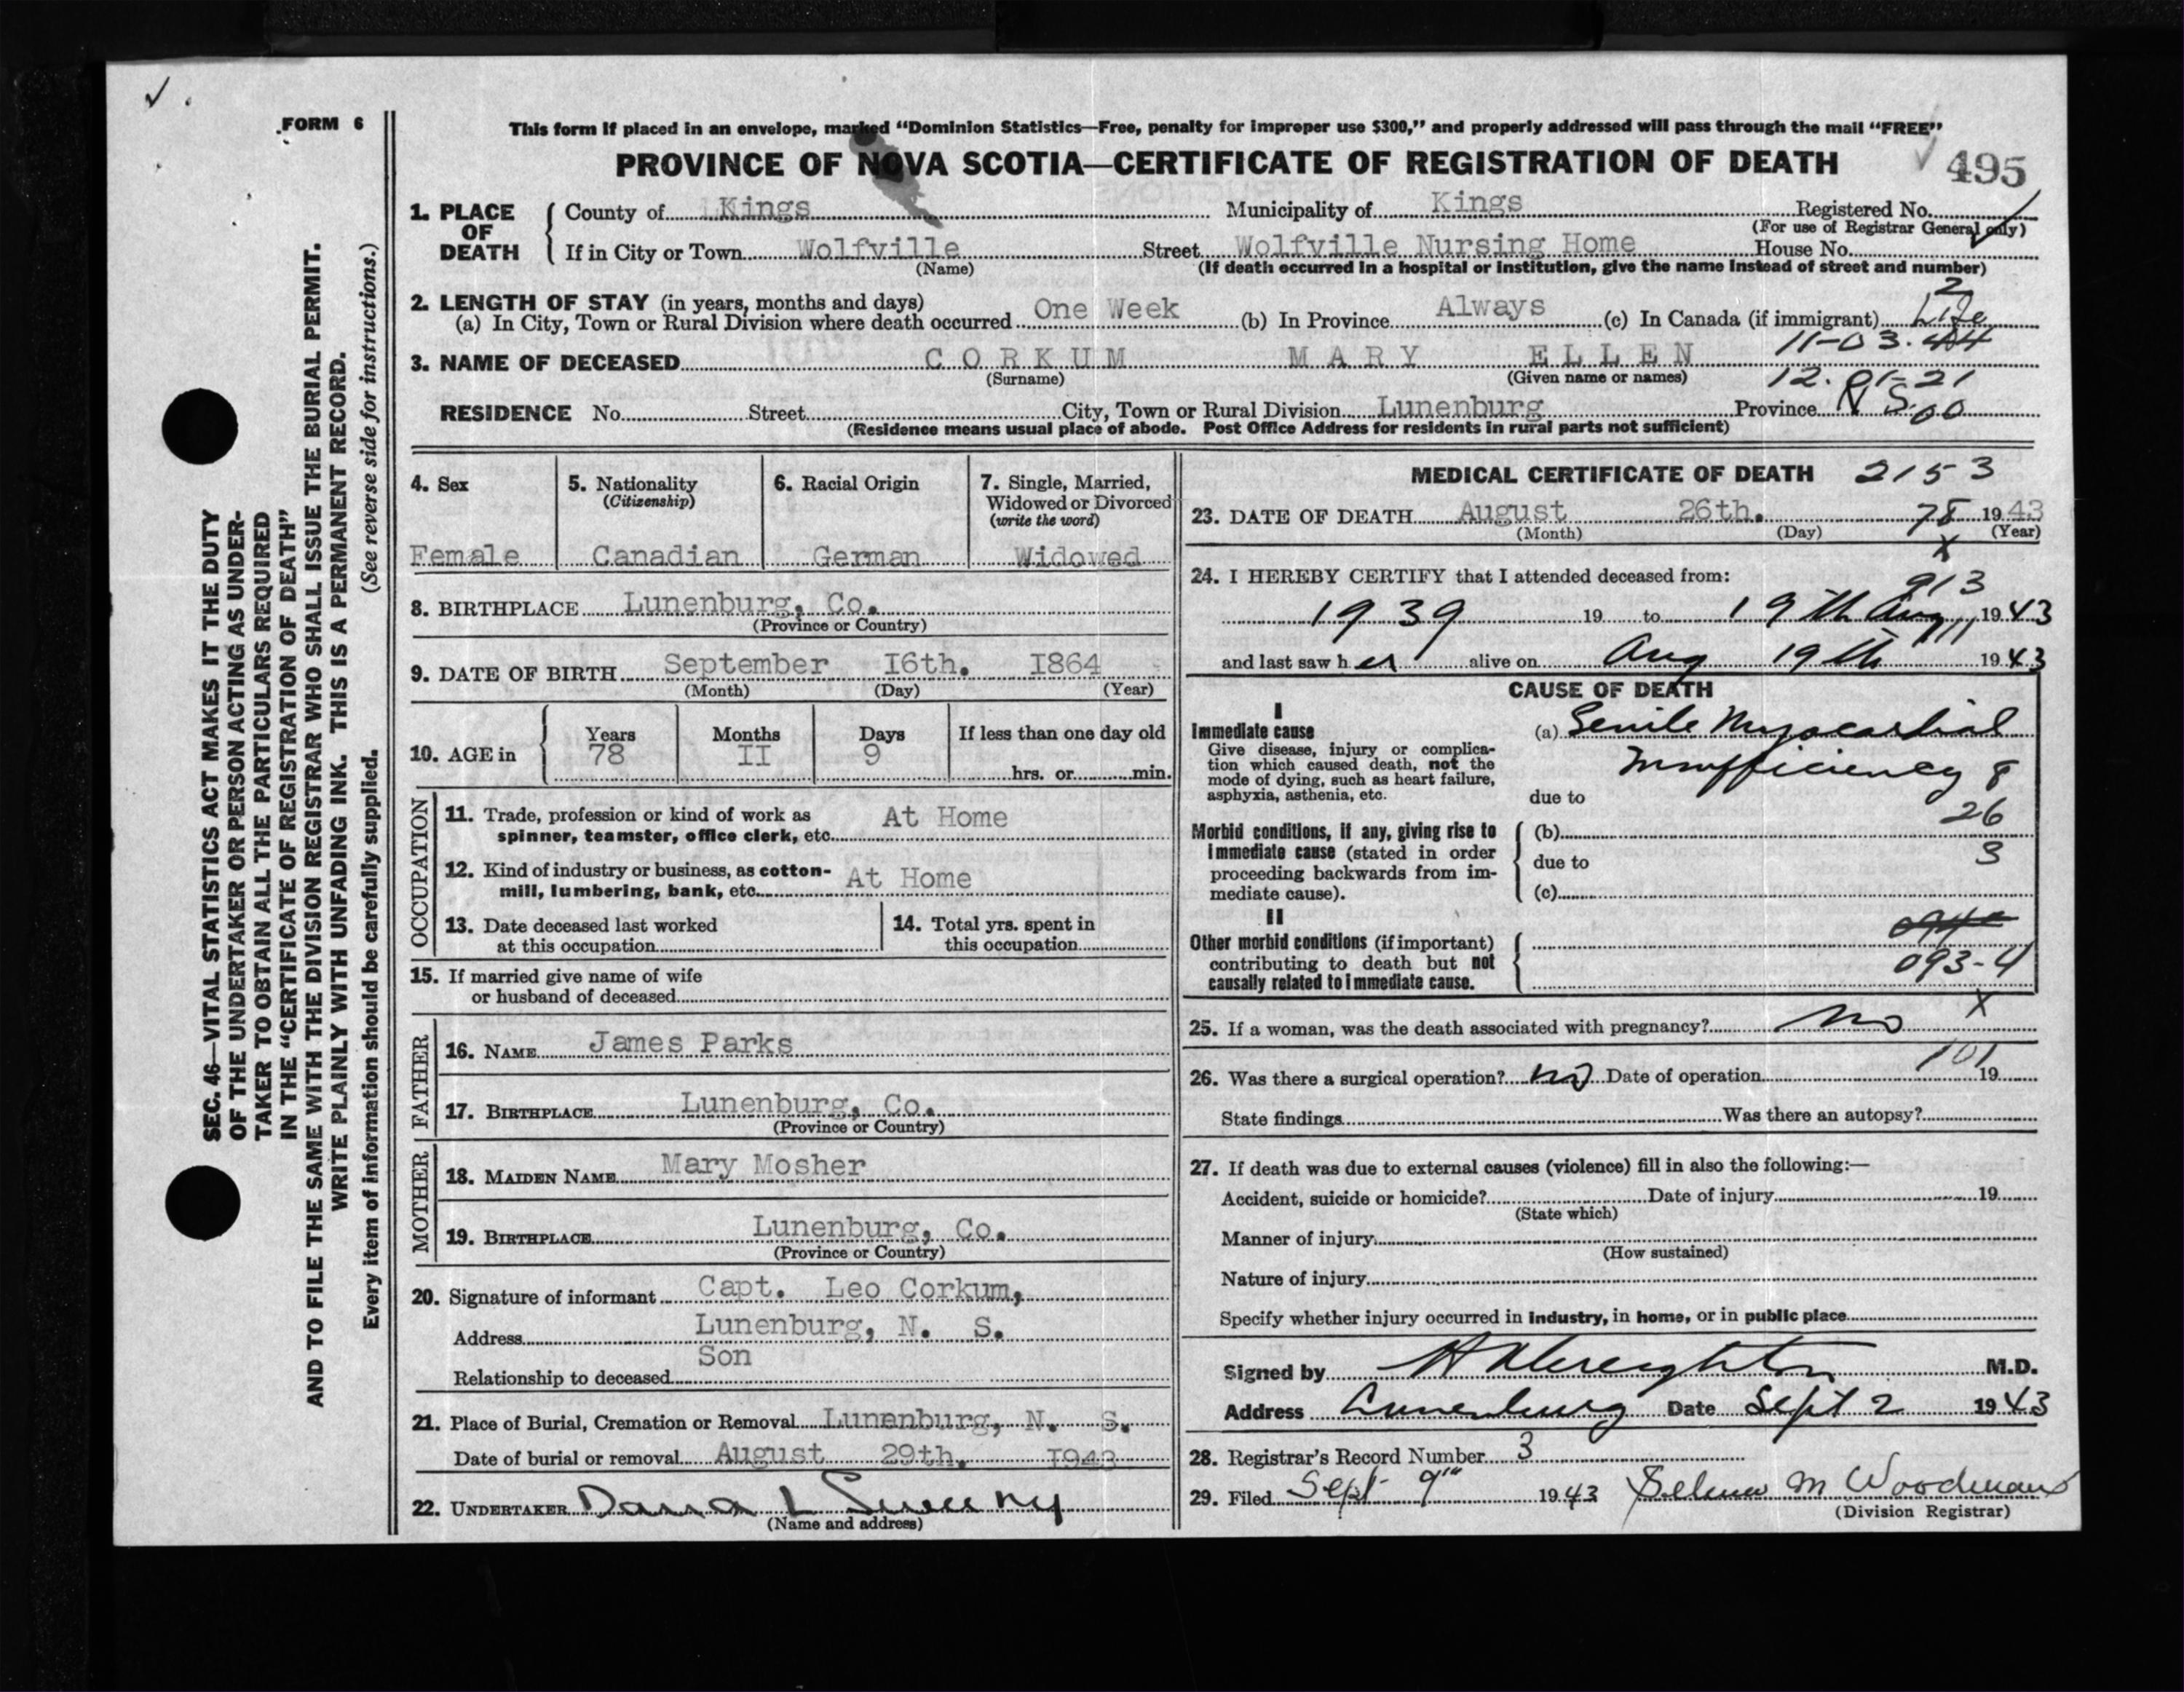 ✓ .
FORM 6
This form if placed in an envelope, marked "Dominion Statistics—Free, penalty for improper use $300," and properly addressed will pass through the mail "FREE"
PROVINCE OF NOVA SCOTIA—CERTIFICATE OF REGISTRATION OF DEATH ✓ 495
1. PLACE OF DEATH { County of Kings Municipality of Kings Registered No.
(For use of Registrar General only)
If in City or Town Wolfville Street Wolfville Nursing Home House No.
(Name) (If death occurred in a hospital or institution, give the name instead of street and number)
2. LENGTH OF STAY (in years, months and days) 2
(a) In City, Town or Rural Division where death occurred One Week (b) In Province Always (c) In Canada (if immigrant) Life
11-03.44
3. NAME OF DECEASED CORKUM MARY ELLEN
(Surname) (Given name or names) 12.01-21
RESIDENCE No. Street City, Town or Rural Division Lunenburg Province N S.00
(Residence means usual place of abode. Post Office Address for residents in rural parts not sufficient)
4. Sex
Female
5. Nationality
(Citizenship)
Canadian
6. Racial Origin
German
7. Single, Married,
Widowed or Divorced
(write the word)
Widowed
8. BIRTHPLACE Lunenburg, Co.
(Province or Country)
9. DATE OF BIRTH September I6th. I864
(Month) (Day) (Year)
10. AGE in { Years Months Days If less than one day old
78 II 9
hrs. or min.
OCCUPATION
11. Trade, profession or kind of work as At Home
spinner, teamster, office clerk, etc.
12. Kind of industry or business, as cotton-
mill, lumbering, bank, etc. At Home
13. Date deceased last worked
at this occupation
14. Total yrs. spent in
this occupation
15. If married give name of wife
or husband of deceased
FATHER
16. NAME James Parks
17. BIRTHPLACE Lunenburg, Co.
(Province or Country)
MOTHER
18. MAIDEN NAME Mary Mosher
19. BIRTHPLACE Lunenburg, Co.
(Province or Country)
20. Signature of informant Capt. Leo Corkum,
Address Lunenburg, N. S.
Son
Relationship to deceased
21. Place of Burial, Cremation or Removal Lunenburg, N. S.
Date of burial or removal August 29th. I943
22. UNDERTAKER Dana L Sweeny
(Name and address)
MEDICAL CERTIFICATE OF DEATH 2153
23. DATE OF DEATH August 26th. 78 1943
(Month) (Day) (Year)
X
24. I HEREBY CERTIFY that I attended deceased from:
913
1939 19 to 19th Aug 1943
111
and last saw her alive on Aug 19th 1943
CAUSE OF DEATH
I
Immediate cause
Give disease, injury or complica-
tion which caused death, not the
mode of dying, such as heart failure,
asphyxia, asthenia, etc.
(a) Senile Myocardial
Insufficiency 8
due to
26
Morbid conditions, if any, giving rise to
immediate cause (stated in order
proceeding backwards from im-
mediate cause).
(b)
due to 3
(c)
II
Other morbid conditions (if important)
contributing to death but not
causally related to immediate cause.
093-4
X
25. If a woman, was the death associated with pregnancy? no
101
26. Was there a surgical operation? no Date of operation 19
State findings Was there an autopsy?
27. If death was due to external causes (violence) fill in also the following:—
Accident, suicide or homicide? Date of injury 19
(State which)
Manner of injury
(How sustained)
Nature of injury
Specify whether injury occurred in industry, in home, or in public place
Signed by Creighton M.D.
Address Lunenburg Date Sept 2 1943
28. Registrar's Record Number 3
29. Filed Sept 9" 1943 M Woodman
(Division Registrar)
SEC. 46—VITAL STATISTICS ACT MAKES IT THE DUTY
OF THE UNDERTAKER OR PERSON ACTING AS UNDER-
TAKER TO OBTAIN ALL THE PARTICULARS REQUIRED
IN THE "CERTIFICATE OF REGISTRATION OF DEATH"
AND TO FILE THE SAME WITH THE DIVISION REGISTRAR WHO SHALL ISSUE THE BURIAL PERMIT.
WRITE PLAINLY WITH UNFADING INK. THIS IS A PERMANENT RECORD.
Every item of information should be carefully supplied. (See reverse side for instructions.)